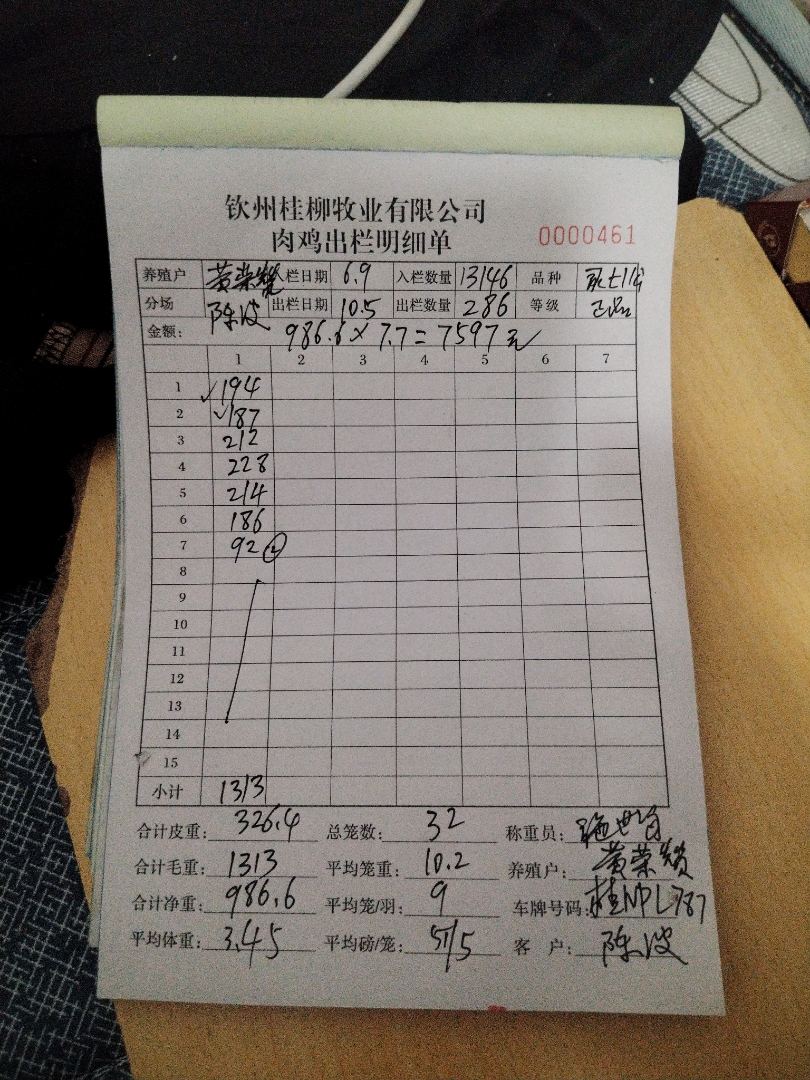 钦州桂柳牧业有限公司
肉鸡出栏明细单 0000461
养殖户 黄荣 栏日期 6.9 入栏数量 13146 品种
分场 陈波 出栏日期 10.5 出栏数量 286 等级 正品
金额: 986.6×7.7=7597元
1 2 3 4 5 6 7
1 194
2 187
3 212
4 228
5 214
6 186
7 92 ②
8
9
10
11
12
13
14
15
小计 1313
合计皮重: 326.4 总笼数: 32 称重员:
合计毛重: 1313 平均笼重: 10.2 养殖户: 黄荣
合计净重: 986.6 平均笼/羽: 9 车牌号码: 桂NPL787
平均体重: 3.45 平均磅/笼: 5/5 客 户: 陈波